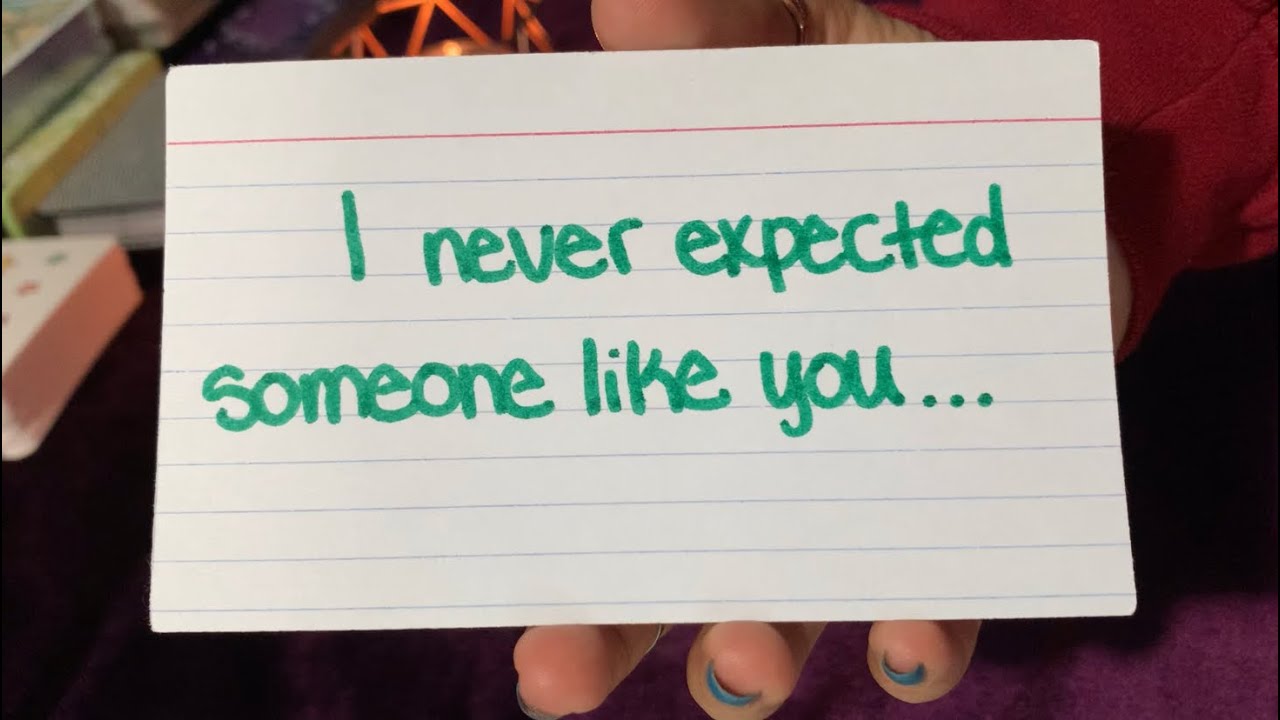 I never expected
someone like you...